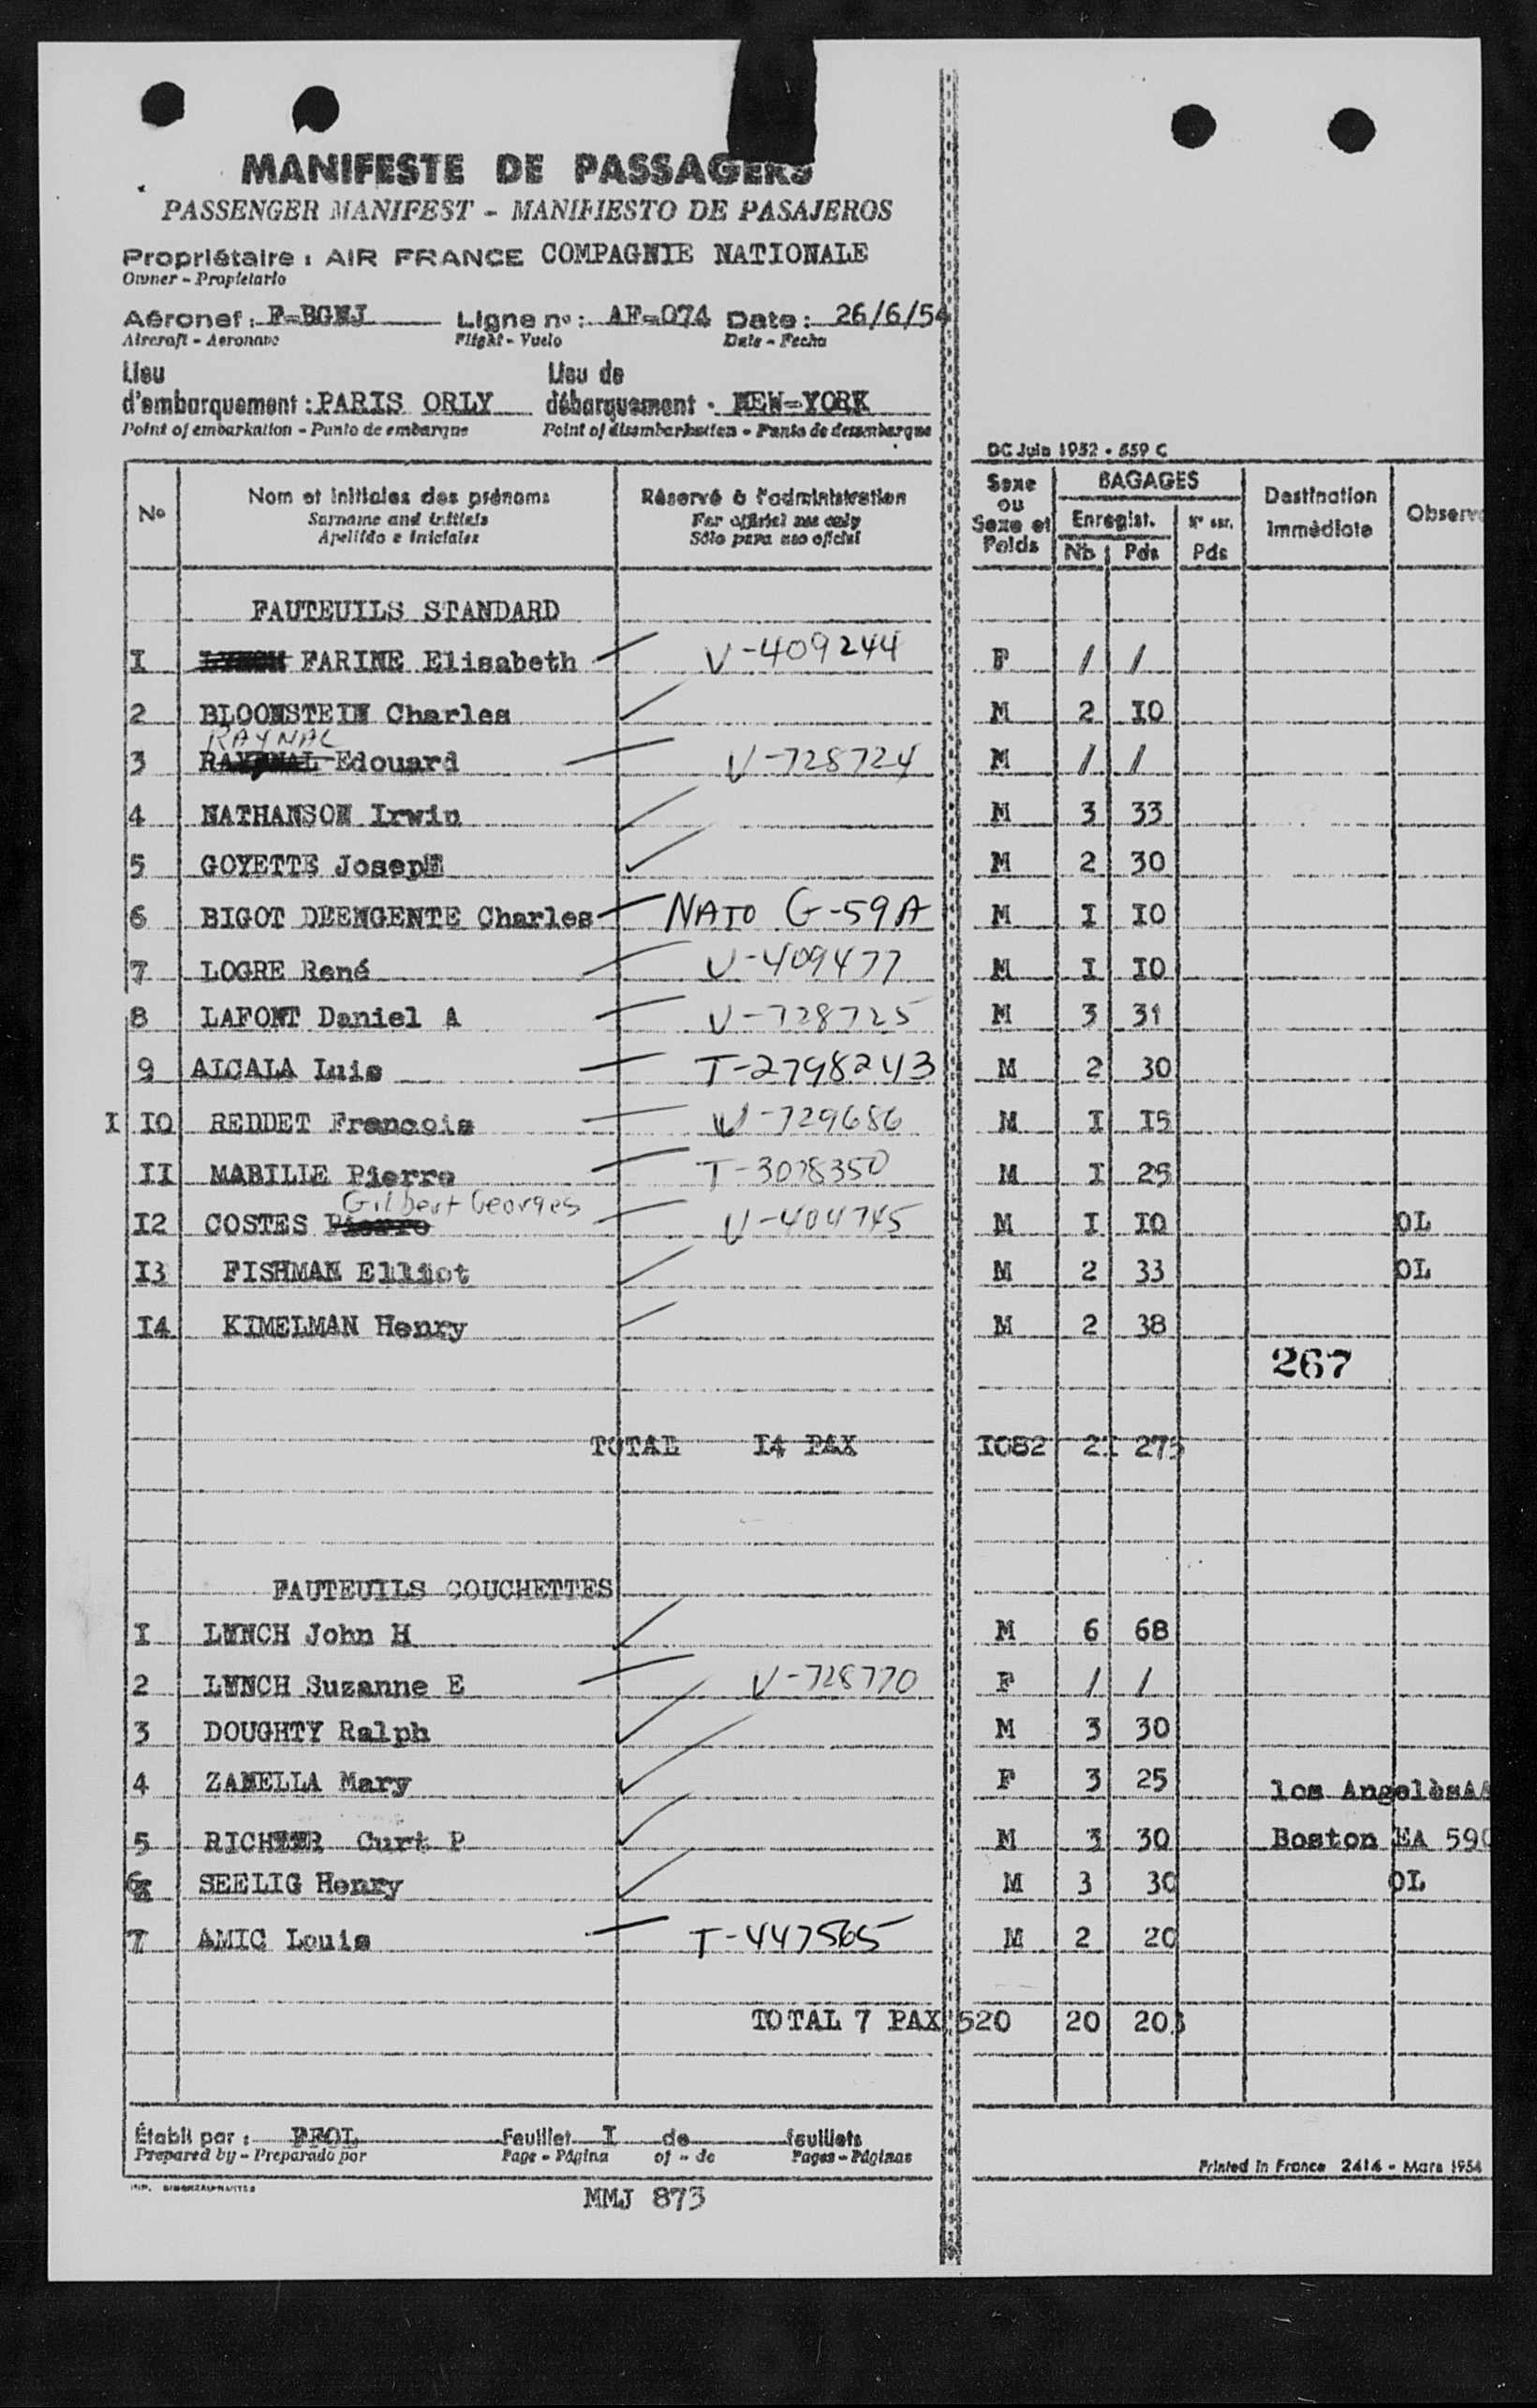 MANIFESTE DE PASSAGERS
PASSENGER MANIFEST - MANIFIESTO DE PASAJEROS
Propriétaire : AIR FRANCE COMPAGNIE NATIONALE
Owner - Propietario
Aéronef : F-BGNJ Ligne no : AF-074 Date : 26/6/54
Aircraft - Aeronave Flight - Vuelo Date - Fecha
Lieu d'embarquement : PARIS ORLY Lieu de débarquement : NEW-YORK
Point of embarkation - Punto de embarque Point of disembarkation - Punto de desembarque
DC Juin 1952 - 559 C
No Nom et initiales des prénoms Réservé à l'administration Sexe ou Sexe et Poids BAGAGES Destination Immédiate Observ
Surname and initials For official use only Enregist.
Apellido e iniciales Sólo para uso oficial Nb Pds Pds
FAUTEUILS STANDARD
I FARINE Elisabeth V-409244 F / /
2 BLOOMSTEIN Charles M 2 IO
RAYNAL
3 Edouard V-728724 M / /
4 NATHANSON Irwin M 3 33
5 GOYETTE Joseph M 2 30
6 BIGOT DEENGENTE Charles NATO G-59A M I IO
7 LOGRE René V-409477 M I IO
8 LAFONT Daniel A V-728725 M 3 31
9 ALCALA Luis T-2798243 M 2 30
I IO REDDET Francois V-729686 M I I5
II MABILLE Pierre T-3078350 M I 25
Gilbert Georges
I2 COSTES Pierre V-404745 M I IO OL
I3 FISHMAN Elliot M 2 33 OL
I4 KIMELMAN Henry M 2 38
267
TOTAL I4 PAX IO82 21 275
FAUTEUILS COUCHETTES
I LYNCH John H M 6 68
2 LYNCH Suzanne E V-728770 F / /
3 DOUGHTY Ralph M 3 30
4 ZANELLA Mary F 3 25 los Angelès AA
5 RICHTER Curt P M 3 30 Boston EA 590
6 SEELIG Henry M 3 30 OL
7 AMIC Louis T-447565 M 2 20
TOTAL 7 PAX 520 20 203
Établi par : PFOL Feuillet I de feuillets
Prepared by - Preparado por Page - Página of - de Pages - Páginas
Printed in France 2414 - Mars 1954
MMJ 873